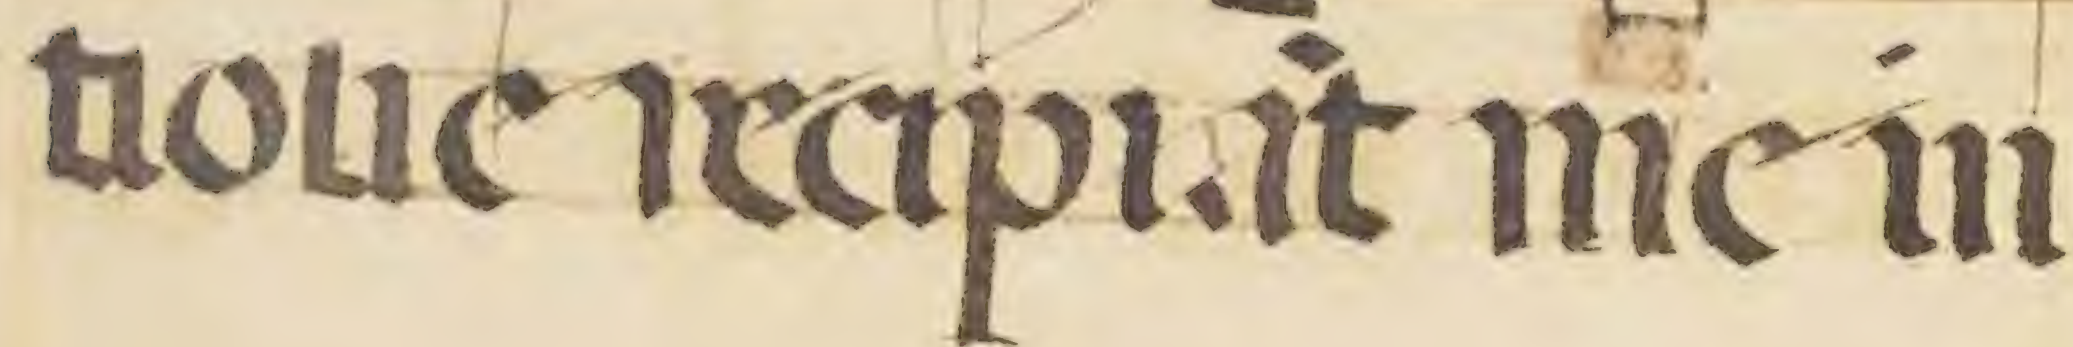 noue recipiat me in